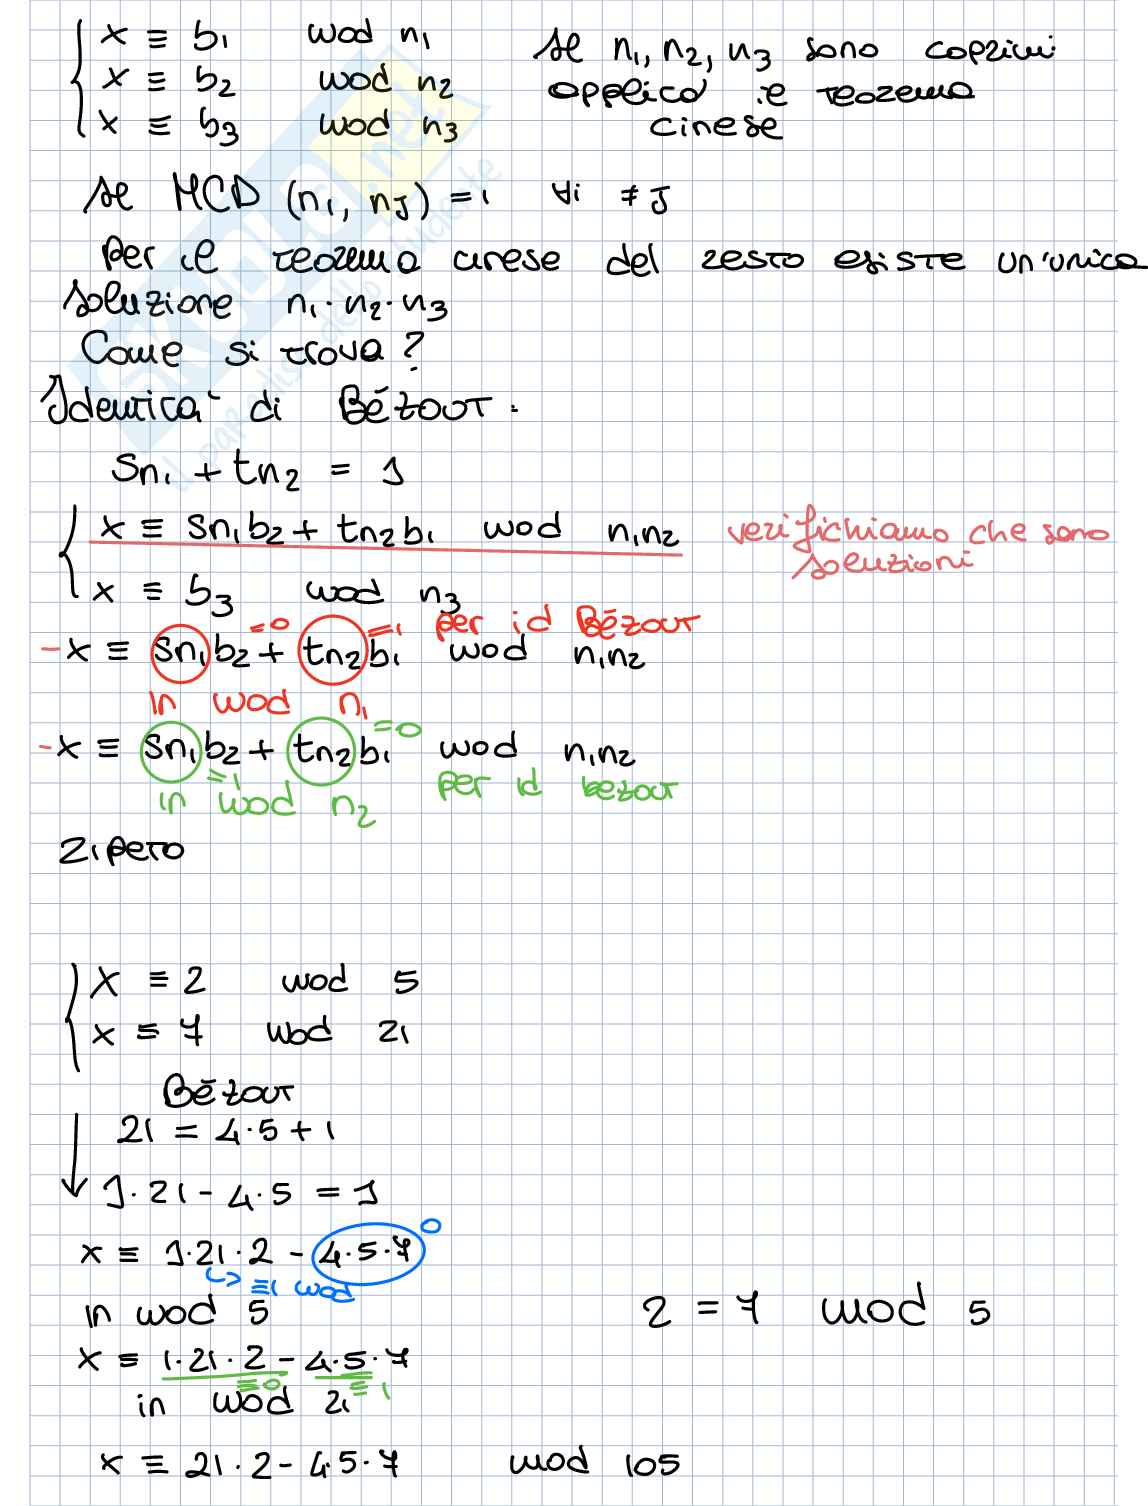 x ≡ b₁ mod n₁
x ≡ b₂ mod n₂
x ≡ b₃ mod n₃
se n₁, n₂, n₃ sono coprimi
applico il teorema
cinese
se MCD (n₁, nJ) = 1 ∀i ≠ J
Per il teorema cinese del resto esiste un'unica
soluzione n₁·n₂·n₃
Come si trova?
Identità di Bézout.
sn₁ + tn₂ = 1
x ≡ sn₁b₂ + tn₂b₁ mod n₁n₂
verifichiamo che sono
soluzioni
x ≡ b₃ mod n₃
=0 =1 per id Bézout
- x ≡ sn₁b₂ + tn₂b₁ mod n₁n₂
in mod n₁
=0
- x ≡ sn₁b₂ + tn₂b₁ mod n₁n₂
=1 per id bezout
in mod n₂
ripeto
x ≡ 2 mod 5
x ≡ 7 mod 21
Bézout
21 = 4·5 + 1
1·21 - 4·5 = 1
x ≡ 1·21·2 - 4·5·7 0
≡1 mod
in mod 5
2 = 7 mod 5
x ≡ 1·21·2 - 4·5·7
≡0 ≡1
in mod 21
x ≡ 21·2 - 4·5·7 mod 105
SKUOLA.net
il paradiso dello studente